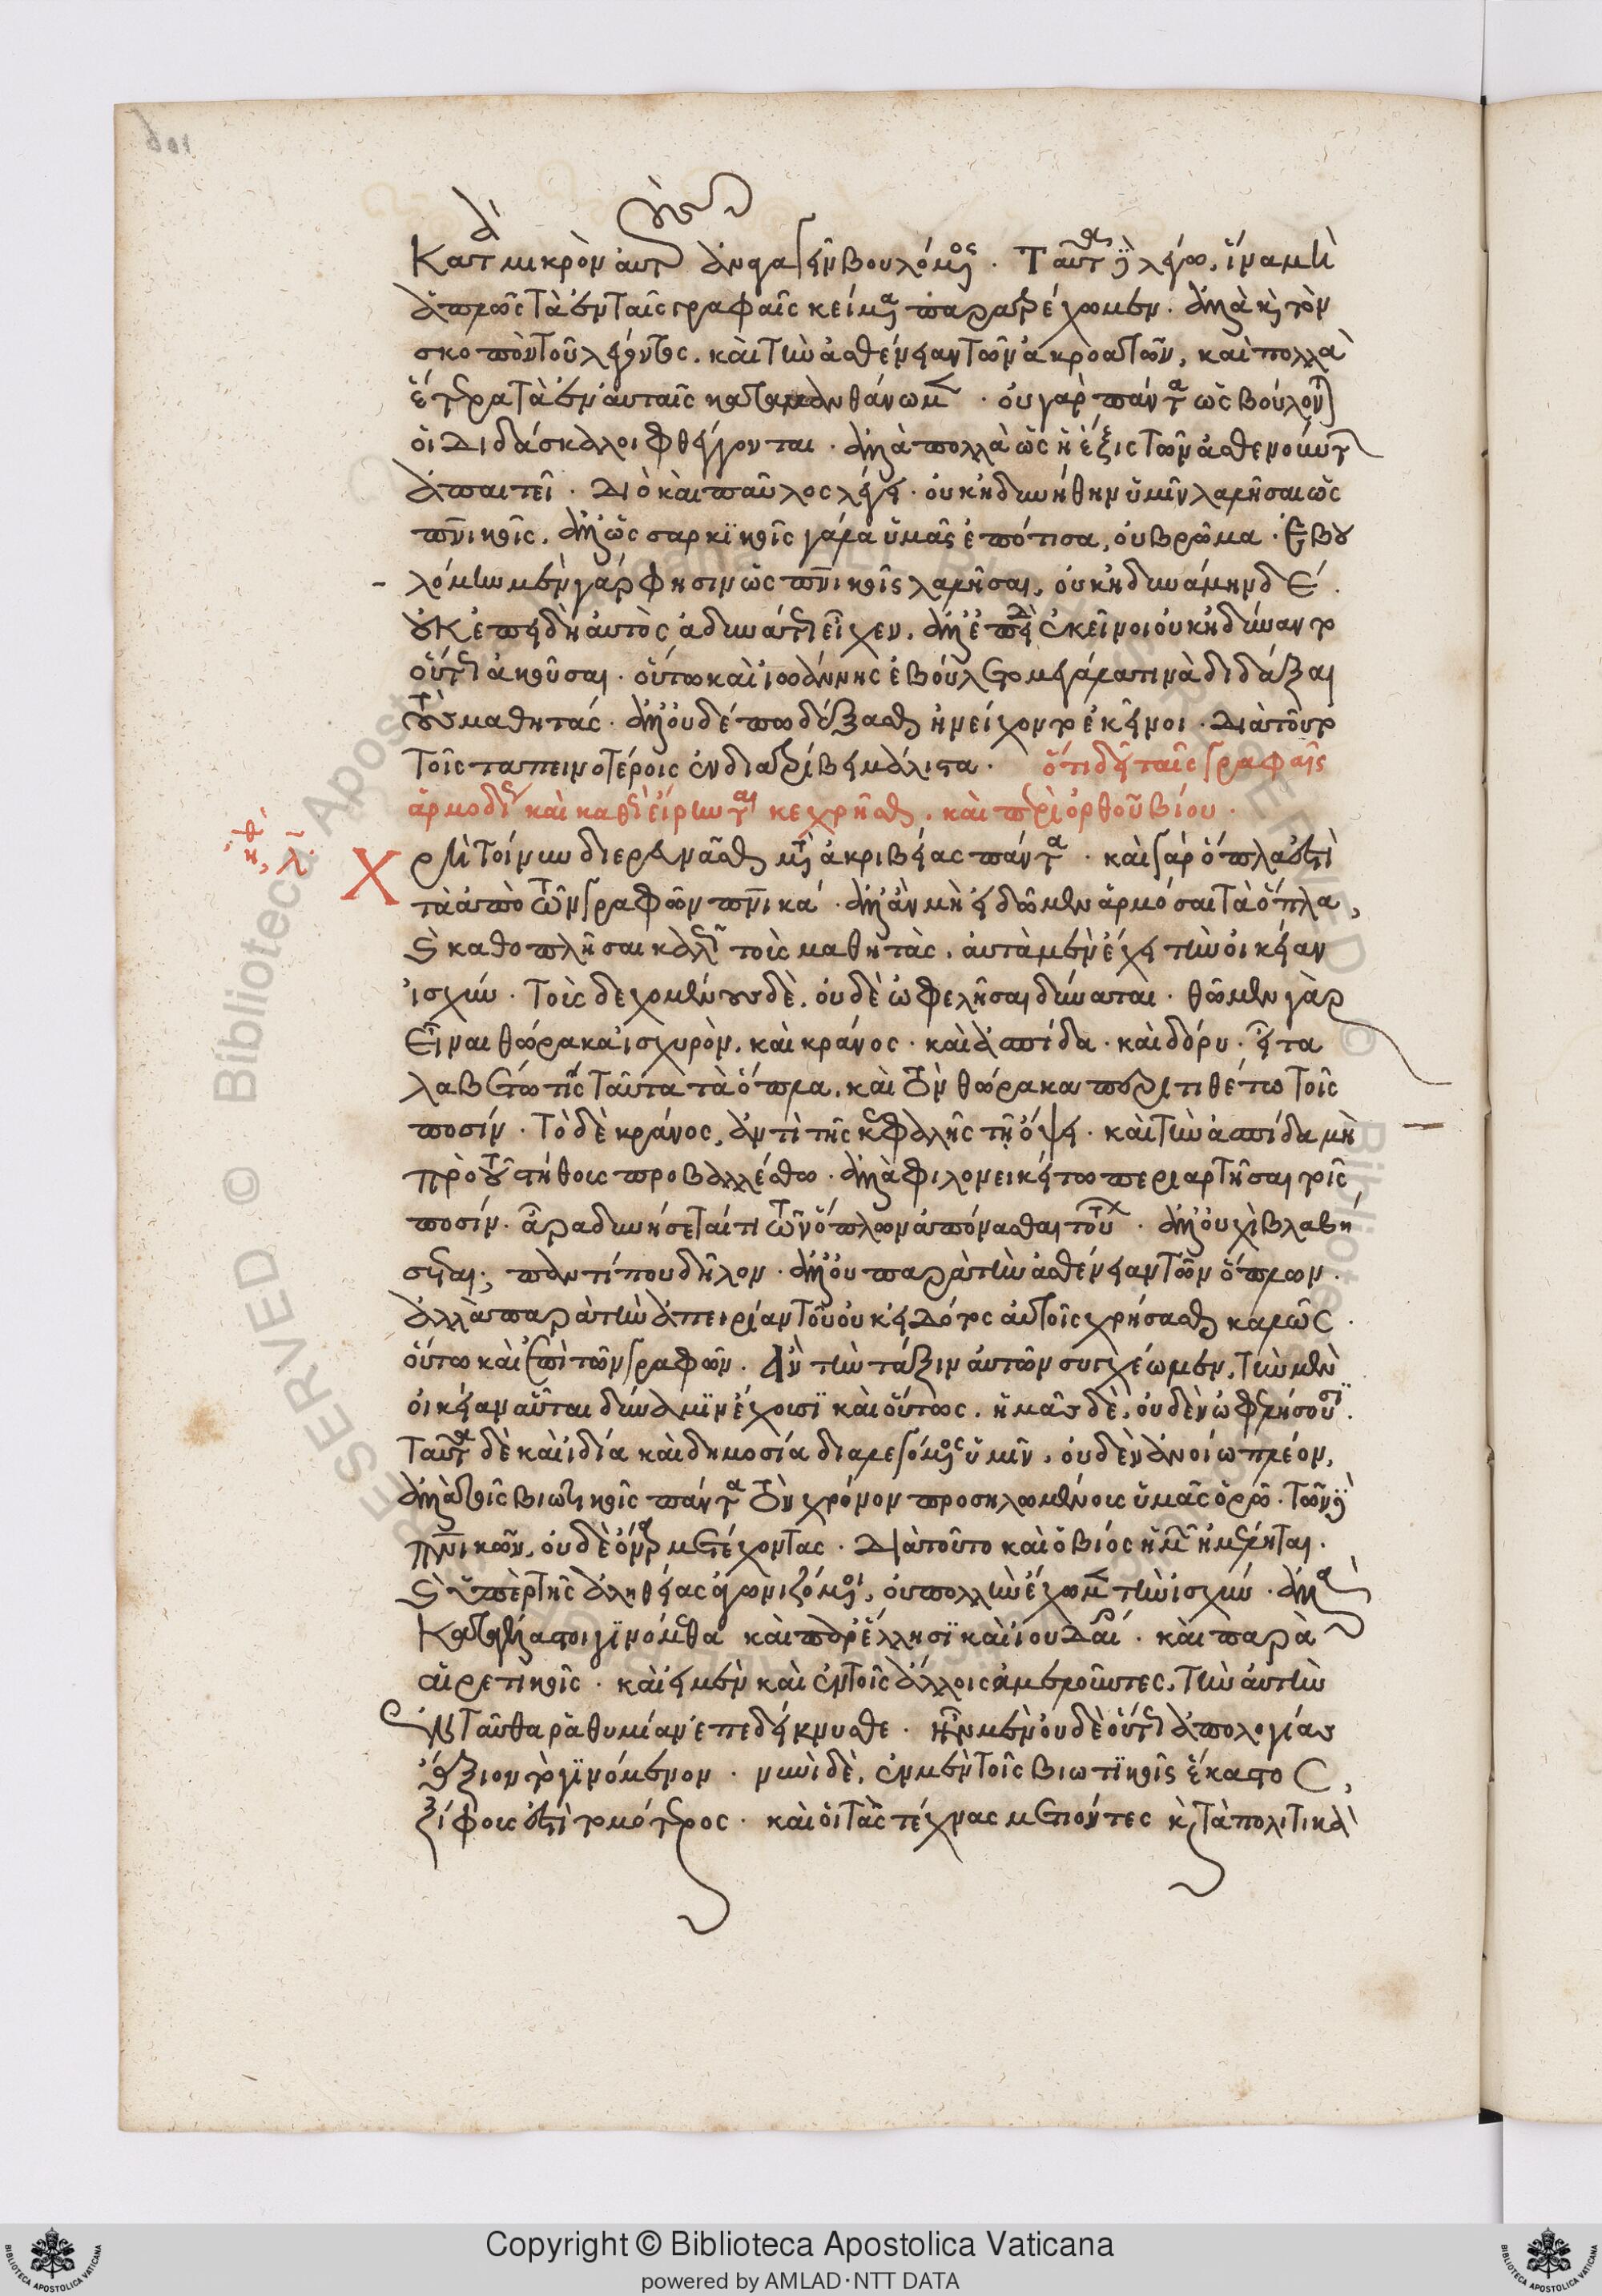 Κατὰ μικρὸν αὐτοὺς ἀναγαγεῖν βουλόμενος. Ταῦτα δὲ λέγω, ἵνα μὴ
ἁπλῶς τὰ ἐν ταῖς γραφαῖς κείμενα παρατρέχωμεν. ἀλλὰ καὶ τὸν
σκοπὸν τοῦ λέγοντος. καὶ τὴν ἀσθένειαν τῶν ἀκροατῶν, καὶ πολλὰ
ἕτερα τὰ ἐν αὐταῖς καταμανθάνωμεν. οὐ γὰρ πάντα ὡς βούλονται
οἱ διδάσκαλοι φθέγγονται. ἀλλὰ πολλὰ ὡς ἡ ἕξις τῶν ἀσθενούντων
ἀπαιτεῖ. Διὸ καὶ παῦλος λέγει. οὐκ ἠδυνήθην ὑμῖν λαλῆσαι ὡς
πνικοῖς. ἀλλ' ὡς σαρκϊκοῖς γάλα ὑμᾶς ἐπότισα, οὐ βρῶμα. Ἐβου
λόμην μὲν γάρ φησιν ὡς πνικοῖς λαλῆσαι, οὐκ ἠδυνάμην δέ.
οὐκ ἐπειδὴ αὐτὸς ἀδυνάτως εἶχεν. ἀλλ' ἐπειδὴ ἐκεῖνοι οὐκ ἠδύναντο
οὕτως ἀκοῦσαι. οὕτω καὶ ἰωάννης ἐβούλετο μεγάλα τινὰ διδάξαι
τοὺς μαθητάς. ἀλλ' οὐδέπω δέξασθαι ἠνείχοντο ἐκεῖνοι. Διὰ τοῦτο
τοῖς ταπεινοτέροις ἐνδιατρίβει μάλιστα. ὅτι δεῖ ταῖς γραφαῖς
ἁρμοδίως καὶ καθὼς εἴρηνται κεχρῆσθαι. καὶ περὶ ὀρθοῦ βίου.
ἠθι κ, λ.
Χρὴ τοίνυν διερευνᾶσθαι μετὰ ἀκριβείας πάντα. καὶ γὰρ ὅπλα ἐστὶ
τὰ ἀπὸ τῶν γραφῶν πνικά. ἀλλ' ἂν μὴ εἰδῶμεν ἁρμόσαι τὰ ὅπλα,
καὶ καθοπλῆσαι καλῶς τοὺς μαθητὰς. αὐτὰ μὲν ἔχει τὴν οἰκείαν
ἰσχύν. τοὺς δεχομένους δὲ, οὐδὲν ὠφελῆσαι δύναται. θῶμεν γὰρ
εἶναι θώρακα ἰσχυρὸν. καὶ κράνος. καὶ ἀσπίδα. καὶ δόρυ. εἶτα
λαβέτω τὶς ταῦτα τὰ ὅπλα. καὶ τὸν θώρακα περιτιθέτω τοῖς
ποσίν. τὸ δὲ κράνος, ἀντὶ τῆς κεφαλῆς τῇ ὄψει. καὶ τὴν ἀσπίδα μὴ
πρὸ τοῦ στήθους προβαλλέσθω. ἀλλὰ φιλονεικείτω περιαρτῆσαι τοῖς
ποσίν. ἆρα δυνήσεταί τι τῶν ὅπλων ἀπόνασθαι τούτων. ἀλλ' οὐχὶ βλαβή
σεται; παντί που δῆλον. ἀλλ' οὐ παρὰ τὴν ἀσθένειαν τῶν ὅπλων.
ἀλλὰ παρὰ τὴν ἀπειρίαν τοῦ οὐκ εἰδότος αὐτοῖς χρήσασθαι καλῶς.
οὕτω καὶ ἐπὶ τῶν γραφῶν. Ἂν τὴν τάξιν αὐτῶν συγχέωμεν, τὴν μὲν
οἰκείαν αὗται δύναμϊν ἔχουσϊ καὶ οὕτως. ἡμᾶς δὲ, οὐδὲν ὠφελήσουσϊ.
ταῦτα δὲ καὶ ἰδία καὶ δημοσία διαλεγόμενος ὑμῖν, οὐδὲν ἀνοίω πλέον,
ἀλλὰ τοῖς βιωτικοῖς πάντα τὸν χρόνον προσηλωμένους ὑμᾶς ὁρῶ. τῶν δὲ
πνικῶν, οὐδὲ ὄναρ μετέχοντας. Διὰ τοῦτο καὶ ὁ βίος ἡμῖν ἠμέληται.
καὶ ὑπὲρ τῆς ἀληθείας ἀγωνιζόμενοι, οὐ πολλὴν ἔχωμεν τὴν ἰσχύν. ἀλλὰ
καταγέλαστοι γϊνόμεθα καὶ παρ' ἕλλησϊ καὶ ἰουδαίοις. καὶ παρὰ
αἱρετικοῖς. καὶ εἰ μὲν καὶ ἐν τοῖς ἄλλοις ἀμελοῦντες, τὴν αὐτὴν
ἐνταῦθα ῥαθυμίαν ἐπεδείκνυσθε. ἦν μὲν οὐδὲ οὕτως ἀπολογίας
ἄξιον τὸ γϊνόμενον. νυνὶ δὲ, ἐν μὲν τοῖς βιωτϊκοῖς ἕκαστος,
ξίφους ἐστὶ τομότερος. καὶ οἱ τὰς τέχνας μετϊόντες καὶ τὰ πολιτικὰ
Copyright © Biblioteca Apostolica Vaticana
powered by AMLAD·NTT DATA